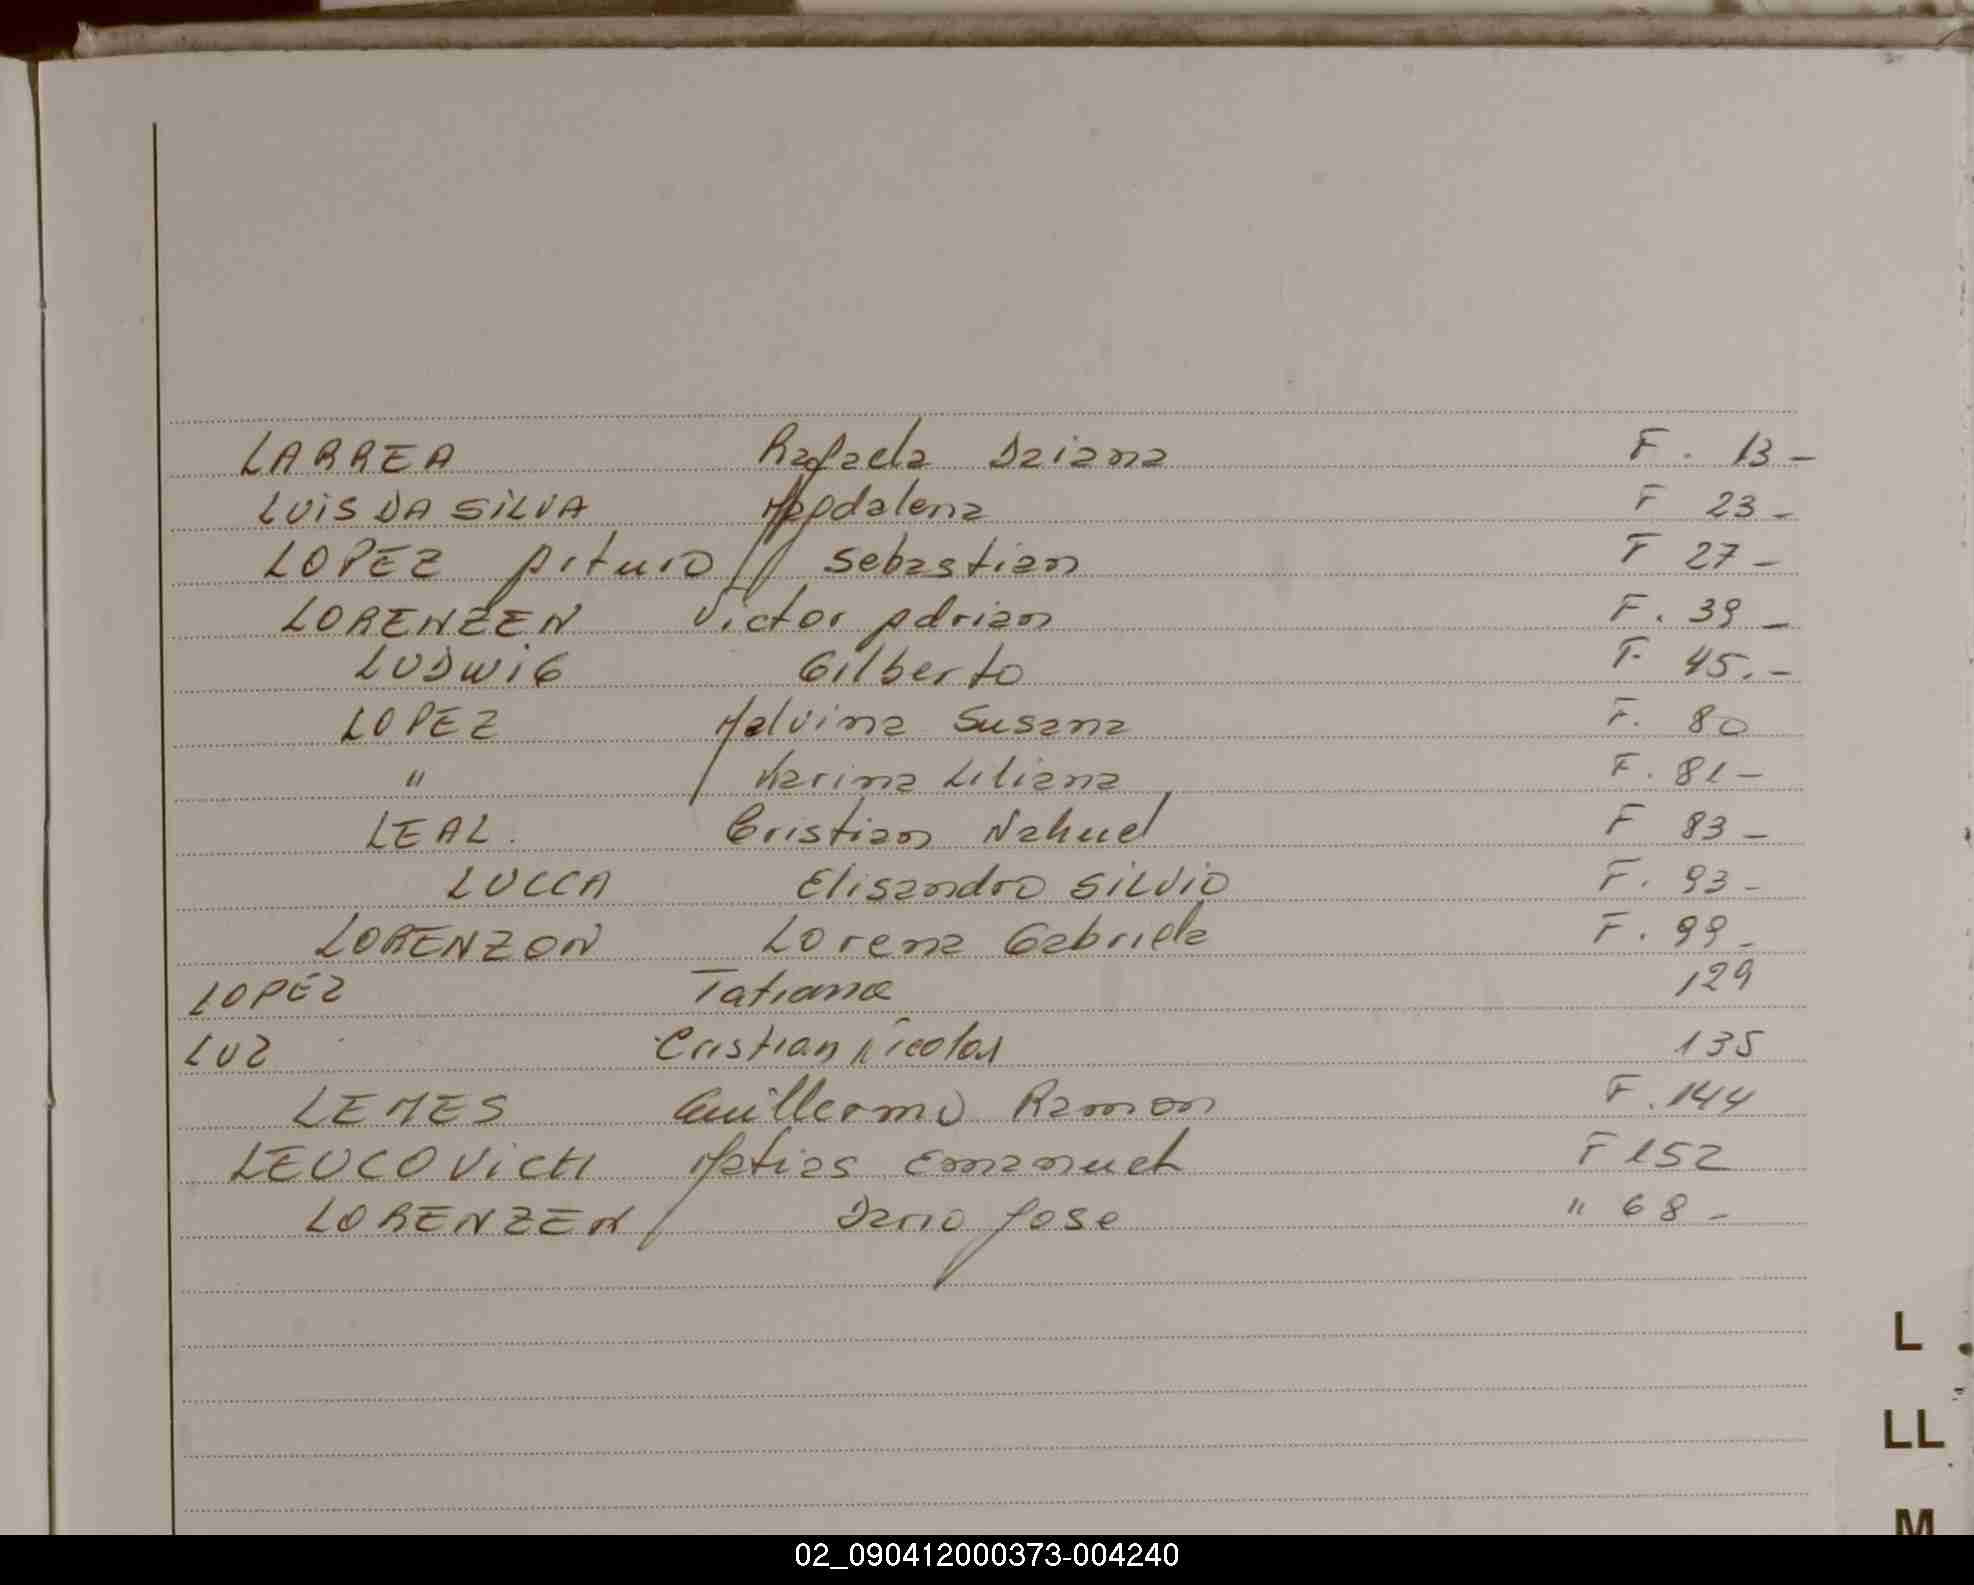 LARREA Rafaela Daiana F. 13-
LUIS DA SILVA Magdalena F 23-
LOPEZ Arturo Sebastian F 27-
LORENZEN Victor Adrian F. 39-
LUDWIG Gilberto F. 45.-
LOPEZ Malvina Susana F. 80
" Karina Liliana F. 81-
LEAL. Cristian Nahuel F 83-
LUCCA Elisandro SILVIO F. 93-
LORENZON Lorena Gabriela F. 99-
LOPEZ Tatiana 129
LUZ Cristian Nicolas 135
LEMES Guillermo Ramon F. 144
LEUCOVICH Matias Emanuel F 152
LORENZEN Dario Jose " 68-
L
LL
M
02_090412000373-004240